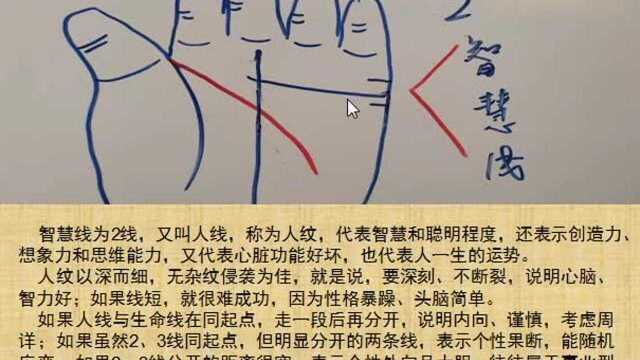 2
智
慧
线
智慧线为2线，又叫人线，称为人纹，代表智慧和聪明程度，还表示创造力、
想象力和思维能力，又代表心脏功能好坏，也代表人一生的运势。
人纹以深而细，无杂纹侵袭为佳，就是说，要深刻、不断裂，说明心脑、
智力好；如果线短，就很难成功，因为性格暴躁、头脑简单。
如果人线与生命线在同起点，走一段后再分开，说明内向、谨慎，考虑周
详；如果虽然2、3线同起点，但明显分开的两条线，表示个性果断，能随机
应变。如果2、3线分开的距离很宽，表示个性外向且大胆，往往属于事业型